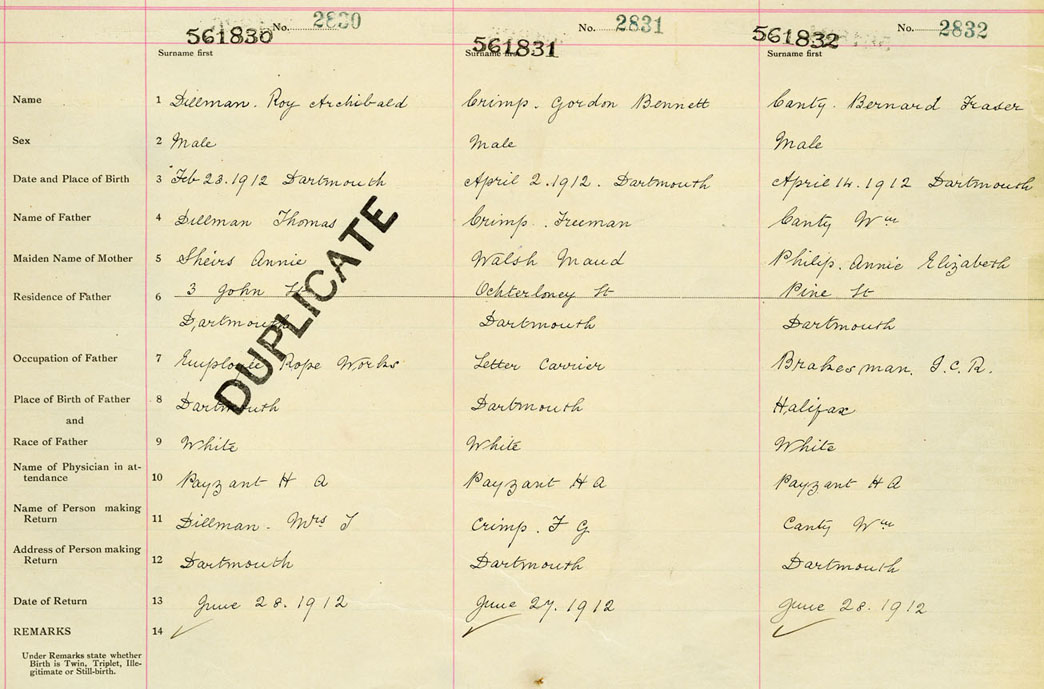 No. 2830 No. 2831 No. 2832
561830 561831 561832
Surname first Surname first Surname first
Name 1 Dillman. Roy Archibald Crimp. Gordon Bennett Canty. Bernard Fraser
Sex 2 Male Male Male
Date and Place of Birth 3 Feb 23.1912 Dartmouth April 2.1912. Dartmouth April 14.1912 Dartmouth
Name of Father 4 Dillman Thomas Crimp. Freeman Canty Wm
Maiden Name of Mother 5 Sheirs Annie Walsh Maud Philip. Annie Elizabeth
Residence of Father 6 3 John St Ochterloney St Pine St
Dartmouth Dartmouth Dartmouth
DUPLICATE
Occupation of Father 7 Employee Rope Works Letter Carrier Brakesman. I.C.R.
Place of Birth of Father 8 Dartmouth Dartmouth Halifax
and
Race of Father 9 White White White
Name of Physician in at-
tendance 10 Payzant H A Payzant H A Payzant H A
Name of Person making
Return 11 Dillman - Mrs T Crimp. F G Canty Wm
Address of Person making
Return 12 Dartmouth Dartmouth Dartmouth
Date of Return 13 June 28.1912 June 27.1912 June 28.1912
REMARKS 14
Under Remarks state whether
Birth is Twin, Triplet, Ille-
gitimate or Still-birth.